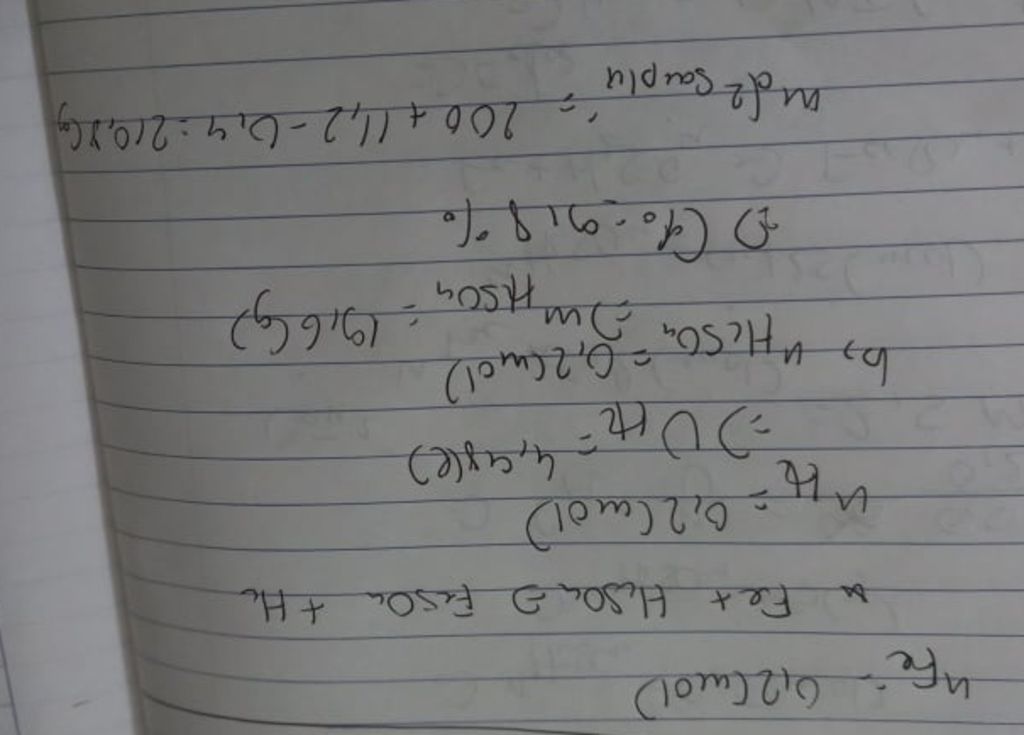 nFe = 0,2 (mol)
a Fe + H2SO4 => FeSO4 + H2
nH2 = 0,2 (mol)
=> VH2 = 4,48 (l)
b, nH2SO4 = 0,2 (mol)
=> mH2SO4 = 19,6 (g)
=> C% = 9,8 %
md2 sau pứ = 200 + 11,2 - 0,4 = 210,8 (g)